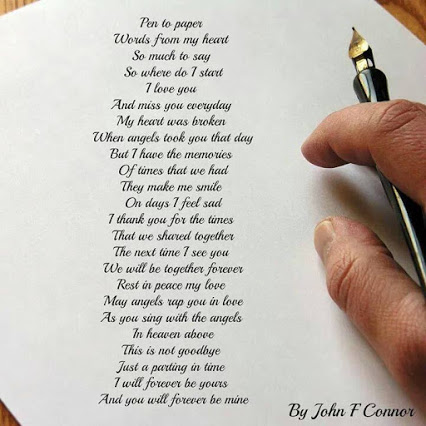 Pen to paper
Words from my heart
So much to say
So where do I start
I love you
And miss you everyday
My heart was broken
When angels took you that day
But I have the memories
Of times that we had
They make me smile
On days I feel sad
I thank you for the times
That we shared together
The next time I see you
We will be together forever
Rest in peace my love
May angels rap you in love
As you sing with the angels
In heaven above
This is not goodbye
Just a parting in time
I will forever be yours
And you will forever be mine
By John F Connor